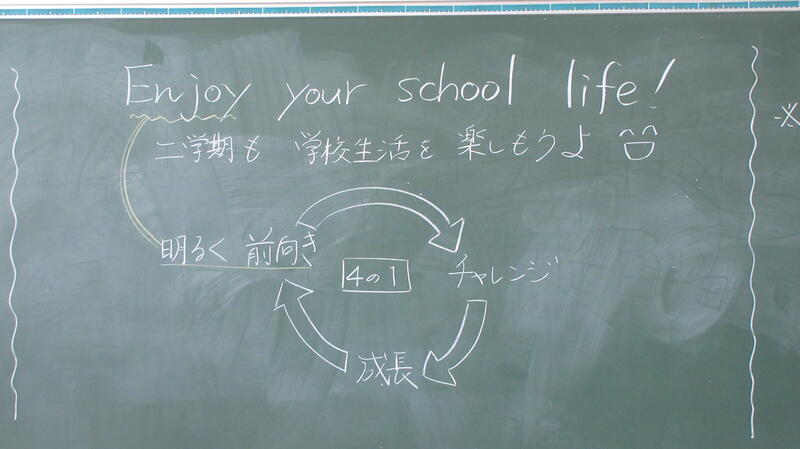 Enjoy your school life!
二学期も 学校生活を 楽しもうよ
明るく 前向き
4の1
チャレンジ
成長
※